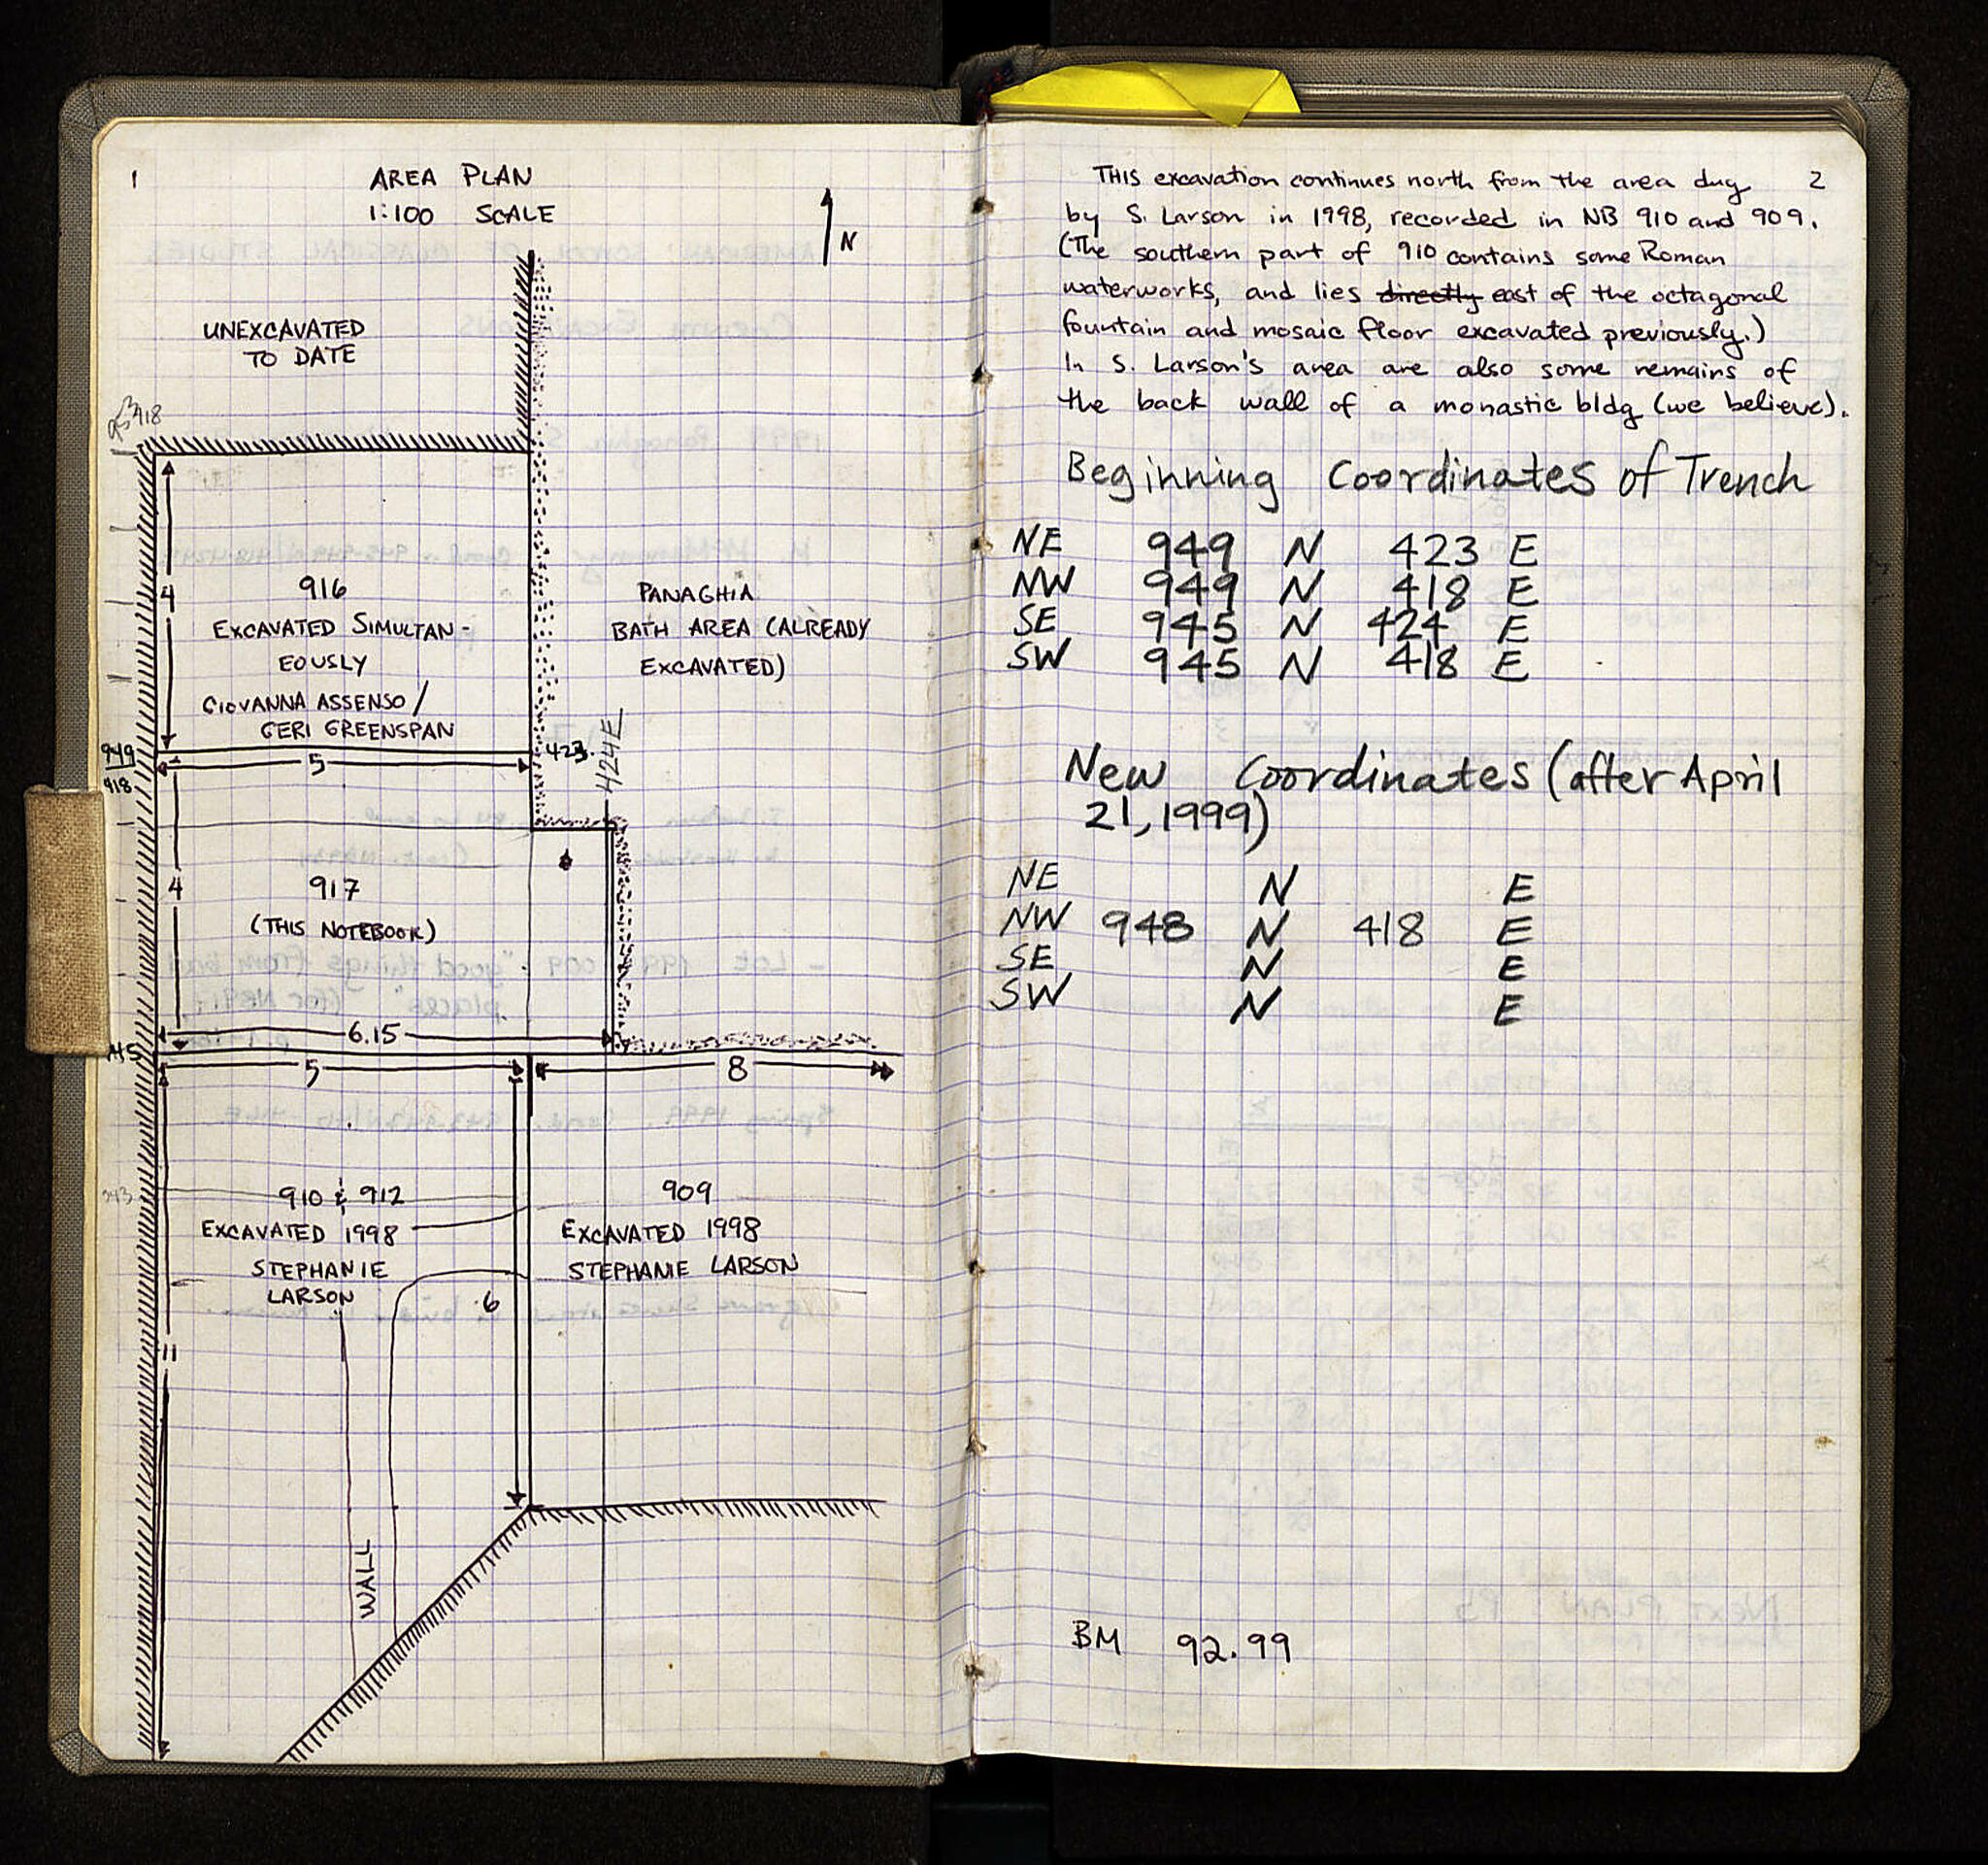 1
AREA PLAN
1:100 SCALE
N
UNEXCAVATED
TO DATE
918
4
916
EXCAVATED SIMULTAN-
EOUSLY
GIOVANNA ASSENSO /
GERI GREENSPAN
PANAGHIA
BATH AREA (ALREADY
EXCAVATED)
949
418
5
423.
424E
4
917
(THIS NOTEBOOK)
6.15
945
5
8
943
910 & 912
EXCAVATED 1998
STEPHANIE
LARSON
909
EXCAVATED 1998
STEPHANIE LARSON
6
11
WALL
2
THIS excavation continues north from the area dug
by S. Larson in 1998, recorded in NB 910 and 909.
(The southern part of 910 contains some Roman
waterworks, and lies directly east of the octagonal
fountain and mosaic floor excavated previously.)
In S. Larson's area are also some remains of
the back wall of a monastic bldg (we believe).
Beginning Coordinates of Trench
NE 949 N 423 E
NW 949 N 418 E
SE 945 N 424 E
SW 945 N 418 E
New Coordinates (after April
21, 1999)
NE N E
NW 948 N 418 E
SE N E
SW N E
BM 92.99